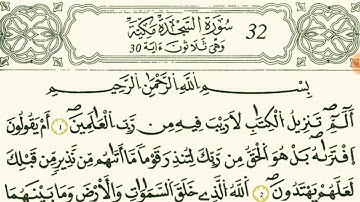 32 سُورَةُ السَّجْدَةِ مَكِّيَّة
وَهِيَ ثَلَاثُونَ ءَايَة 30
بِسْمِ اللَّهِ الرَّحْمَٰنِ الرَّحِيمِ
الٓمٓ ۖ تَنزِيلُ الْكِتَٰبِ لَا رَيْبَ فِيهِ مِن رَّبِّ الْعَٰلَمِينَ ۖ 1 أَمْ يَقُولُونَ
افْتَرَىٰهُ ۖ بَلْ هُوَ الْحَقُّ مِن رَّبِّكَ لِتُنذِرَ قَوْمًا مَّا أَتَىٰهُم مِّن نَّذِيرٍ مِّن قَبْلِكَ
لَعَلَّهُمْ يَهْتَدُونَ ۖ 2 اللَّهُ الَّذِي خَلَقَ السَّمَٰوَٰتِ وَالْأَرْضَ وَمَا بَيْنَهُمَا